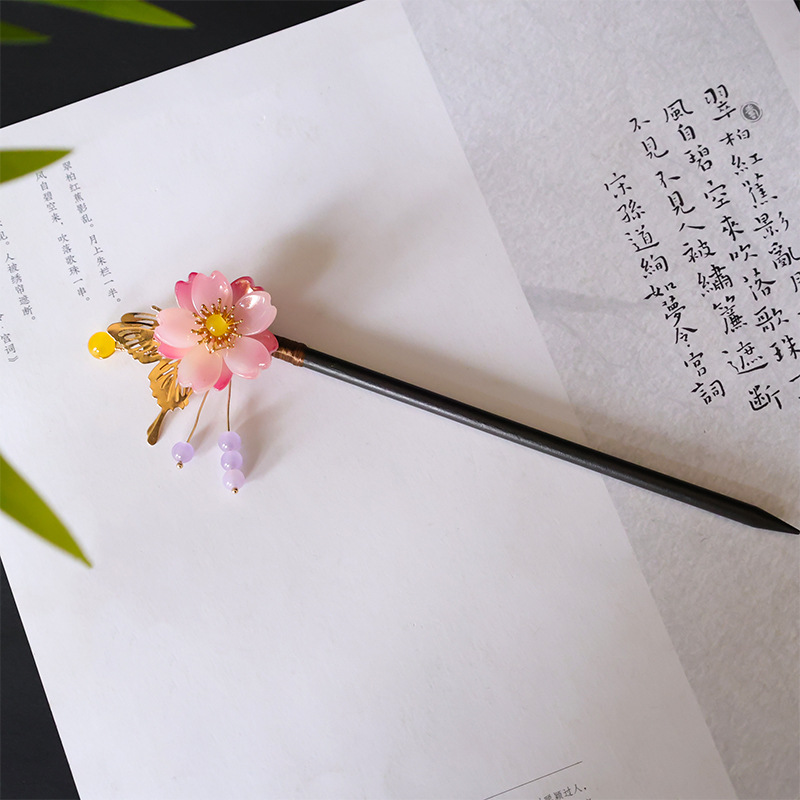 翠柏紅蕉影亂月
風自碧空來吹落歌珠一
不見不見人被繡簾遮斷
宋孫道絢如夢令宮詞
翠柏红蕉影乱。月上朱栏一半。
风自碧空来，吹落歌珠一串。
见。人被绣帘遮断。
宫词》
颖过人，